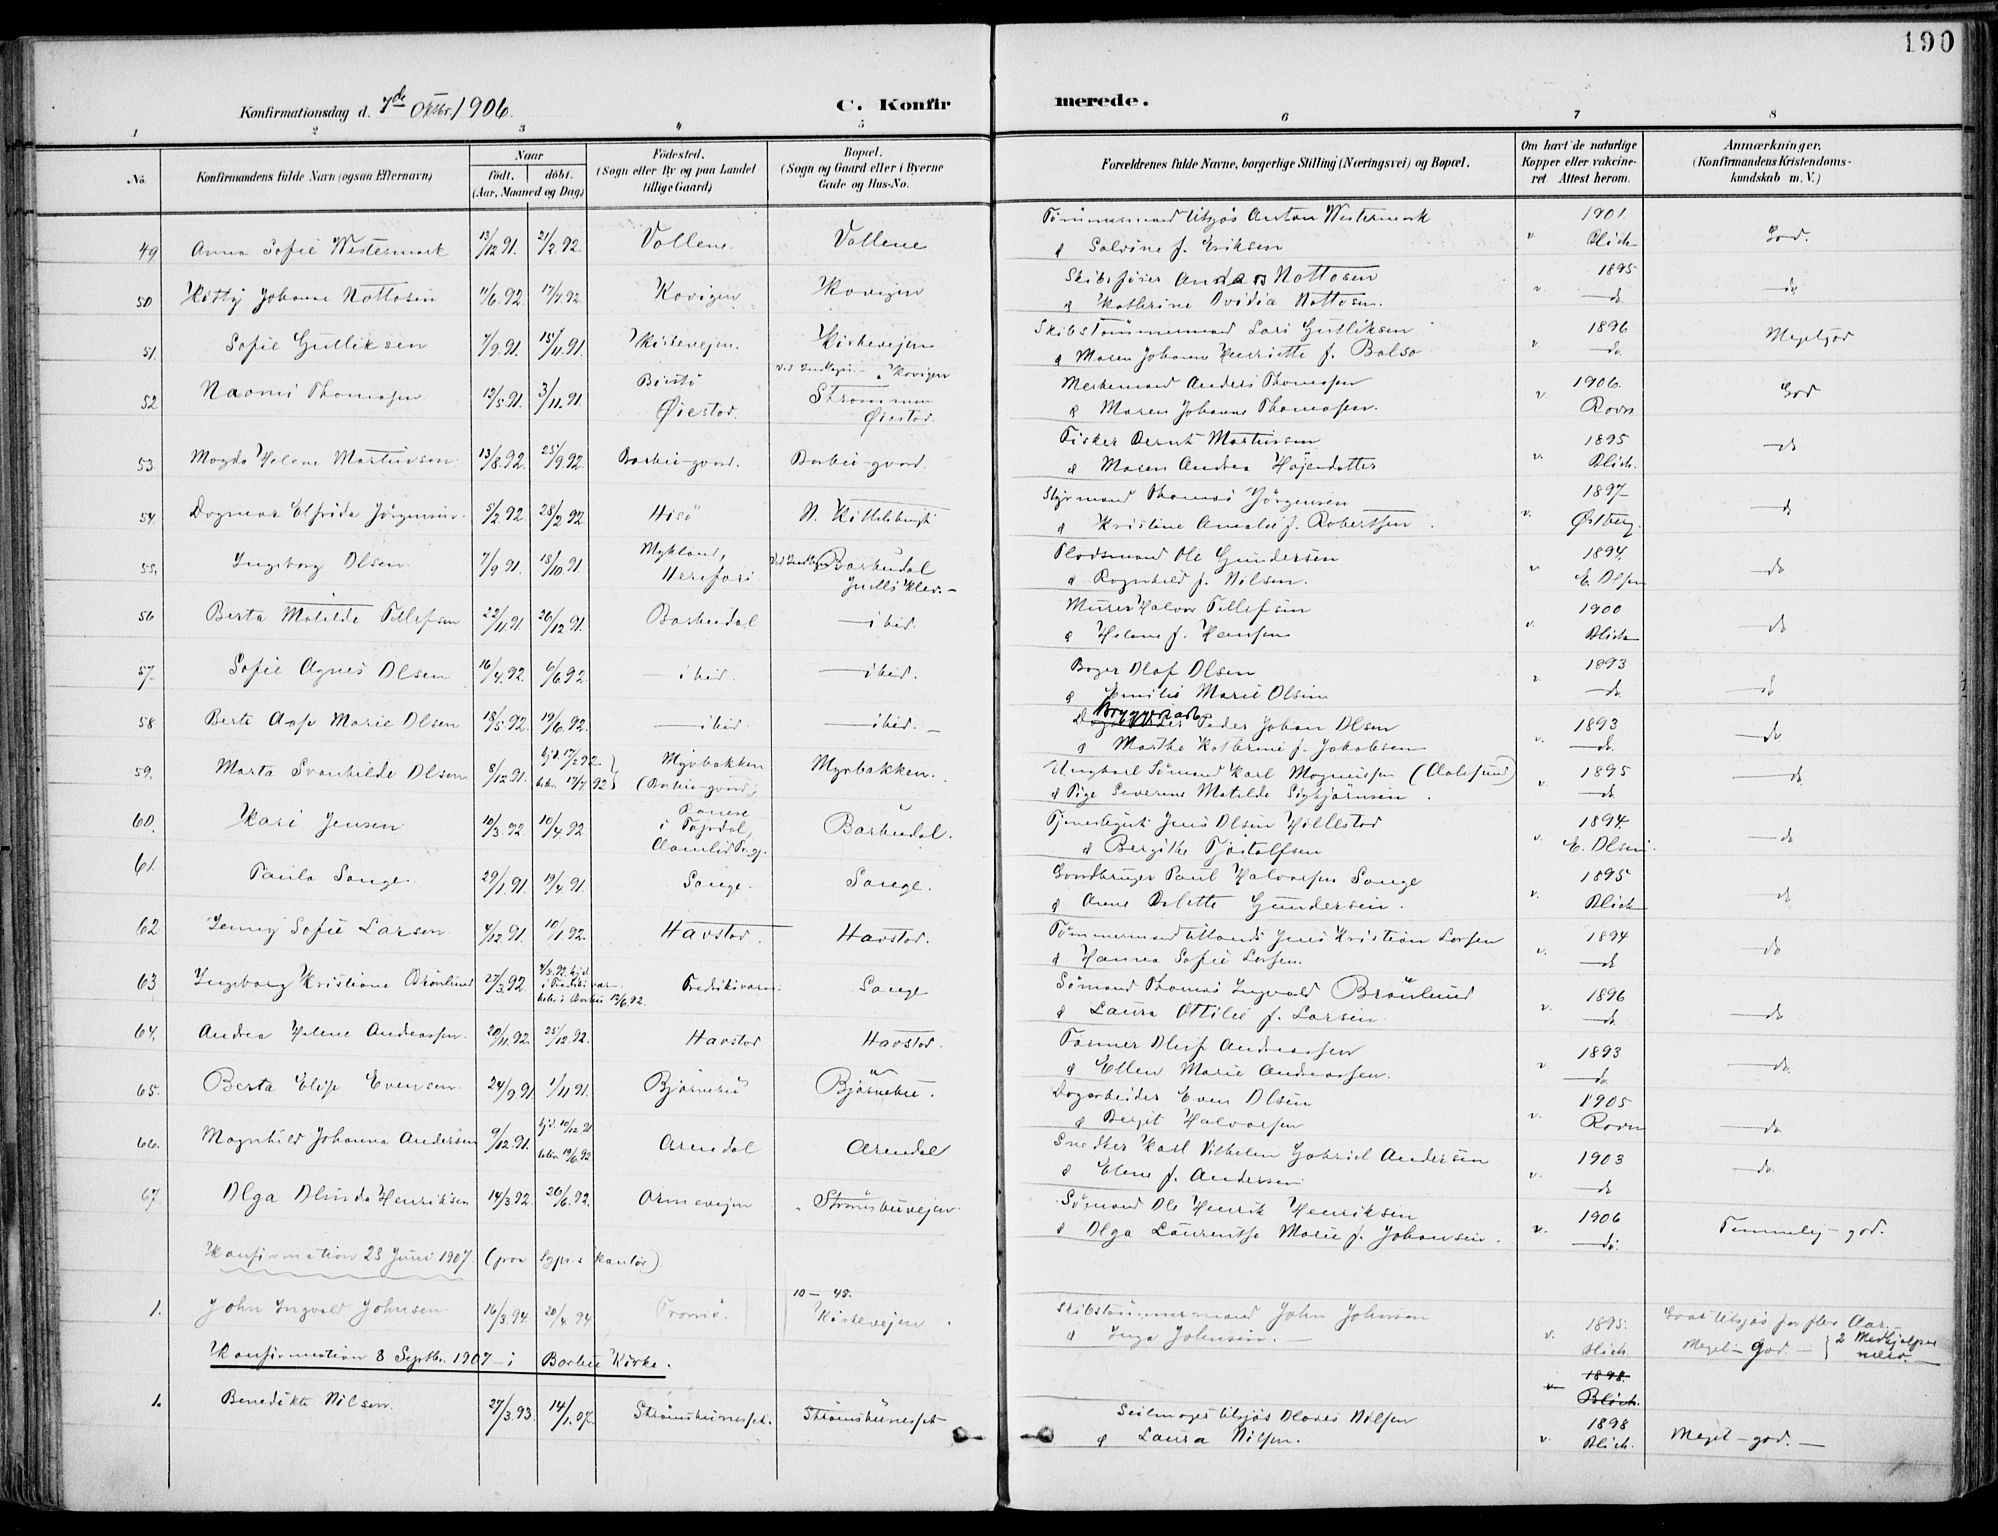 190
Konfirmationsdag d. 7de Oktbr. 1906.
C. Konfirmerede.
1 2 3 4 5 6 7 8
No.
Konfirmandens fulde Navn (ogsaa Efternavn)
Naar
født. døbt.
(Aar, Maaned og Dag)
Fødested.
(Sogn eller By og paa Landet tillige Gaard)
Bopæl.
(Sogn og Gaard eller i Byerne Gade og Hus-No.
Forældrenes fulde Navne, borgerlige Stilling (Næringsvei) og Bopæl.
Om havt de naturlige Kopper eller vakcineret. Attest herom.
Anmærkninger.
(Konfirmandens Kristendomskundskab m. V.)
49 Anna Sofie Westermark 13/12 91. 21/2 92. Vollene. Vollene Tømmermand Utsjøs Anton Westermark
& Salvine f. Eriksen v. 1901. Blich God.
50 Kitty Johanne Nottosen 11/6 92. 17/7 92. Kovigen Kovigen Skibsfører Anders Nottosen
& Kathrine Ovidia Nottosen. v 1895 do do
51. Sofie Gutliksen 7/9 91. 15/11 91. Kirkevejen. Kirkevejen Skibstømmermand Lars Gutliksen
& Maren Johanne Henriette f. Balso v 1896 do Megetgod
52 Naomi Thomasen 12/5 91. 3/11 91. Øiestad. Strømmen Øiestad. Anders Thomasen
& Maren Johanne Thomasen. v 1906. Rovn God
53. Magda Helene Martinsen. 13/8 92. 25/9 92. Barbu-gaard. Barbu-gaard. Fisker Bernt Martinsen
& Maren Andrea Hajendatter v. 1895 Blich. do
54. Dagmar Elfrida Jörgensen. 5/2 92. 28/2 92. Hisö N. Kittelsbugt Styrmand Thomas Jörgensen
& Kristine Amalie f. Robertsen. v. 1897 Østberg. do
55. Ingeborg Olsen. 7/9 91. 18/10 91 Mykland, Herefoss Barbudal Ole Gundersen
& Ragnhild f. Nilsen. v. 1894. E. Olsen do
56 Berta Matilde Tellefsen 22/11 91. 26/12 91. Barbudal ibid. Murer Halvor Tellefsen
& Helene f. Hansen v. 1900 Blich do
57. Sofie Agnes Olsen 16/4 92. 6/6 92. ibid. ibid. Bager Olaf Olsen
& Emilie Marie Olsen v. 1893 do. do
58 Berte Aase Marie Olsen 18/5 92. 19/6 92. ibid. ibid. Peder Johan Olsen
& Marthe Kathrine f. Jakobsen v. 1893 do. do
59. Marta Svanhilde Olsen 8/12 91. hjd. 17/2 92. bekr. 17/7 92 Myrbakken (Barbu-gaard) Myrbakken. Ungkarl Sömand Karl Magnussen (Aalesund)
& Pige Severine Matilde Sigbjörnsen. v. 1895 do. do
60. Kari Jensen 10/3 92 10/4 92 i Topdal, Aamlid Prgj. Barbudal. Tjenestegut Jens Olsen Hillestad
& Bergithe Tjöstolfsen v. 1894. E. Olsen. do
61. Paula Songe. 29/1 91. 19/4 91. Songe. Songe. Gaardbruger Paul Halvorsen Songe
& Anne Gundersen. v. 1895 Blich do
62 Jenny Sofie Larsen 4/12 91. 10/1 92. Havstad. Havstad. Tømmermand Utlands Jens Kristian Larsen
& Hanna Sofie Larsen. v. 1894 do do
63 Ingeborg Kristiane Brönlund 27/3 92 Songe Sömand Thomas Ingvald Brönlund
& Laura Ottilie f. Larsen. v. 1896 do. do
64. Andrea Helene Andreassen. 20/11 92. 25/12 92. Havstad Havstad. Oluf Andreassen
& Ellen Marie Andreassen. v 1893 do. do.
65. Berta Elise Evensen. 24/9 91 1/11 91. Bjørnebu Bjørnebu. Dagarbeider Even Olsen
& Bergit Halvorsen v. 1905 Rovn do.
66. Magnhild Johanna Andersen 9/12 91. hjd. 10/12 91 bekr. 19/6 92 Arendal Arendal Snedker Karl Vilhelm Gabriel Andersen
& Elene f. Andersen. v. 1903 do do.
67. Olga Olinda Henriksen 14/3 92. 26/6 92. Strömsbuvejen. Sömand Ole Henrik Henriksen
& Olga Laurentse Marie f. Johansen. v. 1906 do. Temmelig god.
Konfirmation 23 Juni 1907. (paa Sgpr.s kontor)
1. John Ingvald Johnsen. 16/3 94. 20/4 94 Tromö. 10-45. Kirkevejen. Skibstømmermand John Johnsen
& Inga Johnsen. v. 1895. Blich. Meget god
Konfirmation 8 Septbr. 1907 i Barbu Kirke.
1898. Blich.
1. Benedikte Nilsen. 27/3 93. 14/1 07. Strömsbunesset. Strömsbunesset Seilmager Utsjös Nilsen
& Laura Nilsen. v. 1898 Blich. Meget god.